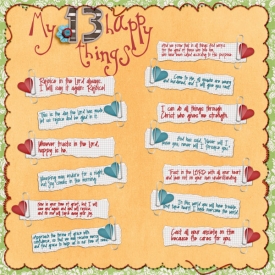 My 13 happy things
Rejoice in the Lord always.
I will say it again: Rejoice!
This is the day the Lord has made
let us rejoice and be glad in it.
Whoever trusts in the Lord,
happy is he.
Weeping may endure for a night
but joy comes in the morning.
Now is your time of grief, but I will
see you again and you will rejoice,
and no one will take away your joy.
Approach the throne of grace with
confidence, so that we may receive mercy
and find grace to help us in our time of need.
And we know that in all things God works
for the good of those who love him,
who have been called according to his purpose.
Come to me, all
and burdened, and I will give you rest.
I can do all things through
Christ who gives me strength.
And he said, "Never will I
leave you, never will I forsake you."
Trust in the LORD with all your heart
and lean not on your own understanding.
In this world you will have trouble.
But take heart! I have overcome the world.
Cast all your anxiety on him
because he cares for you.